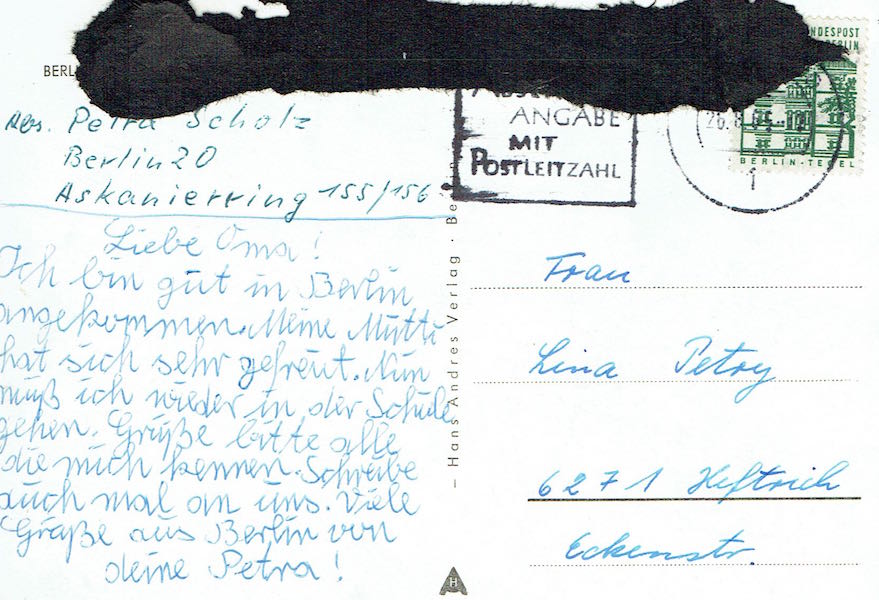 BERL
Abs. Petra Scholz
Berlin 20
Askanierring 155/156
Liebe Oma!
Ich bin gut in Berlin
angekommen. Meine Mutti
hat sich sehr gefreut. Nun
muß ich wieder in der Schule
gehen. Grüße bitte alle
die mich kennen. Schreibe
auch mal an uns. Viele
Grüße aus Berlin von
deine Petra!
– Hans Andres Verlag · Be
H
ANGABE
MIT
POSTLEITZAHL
NDESPOST
BERLIN
BERLIN-TEGEL
1
Frau
Lina Petry
6271 Heftrich
Eckenstr.